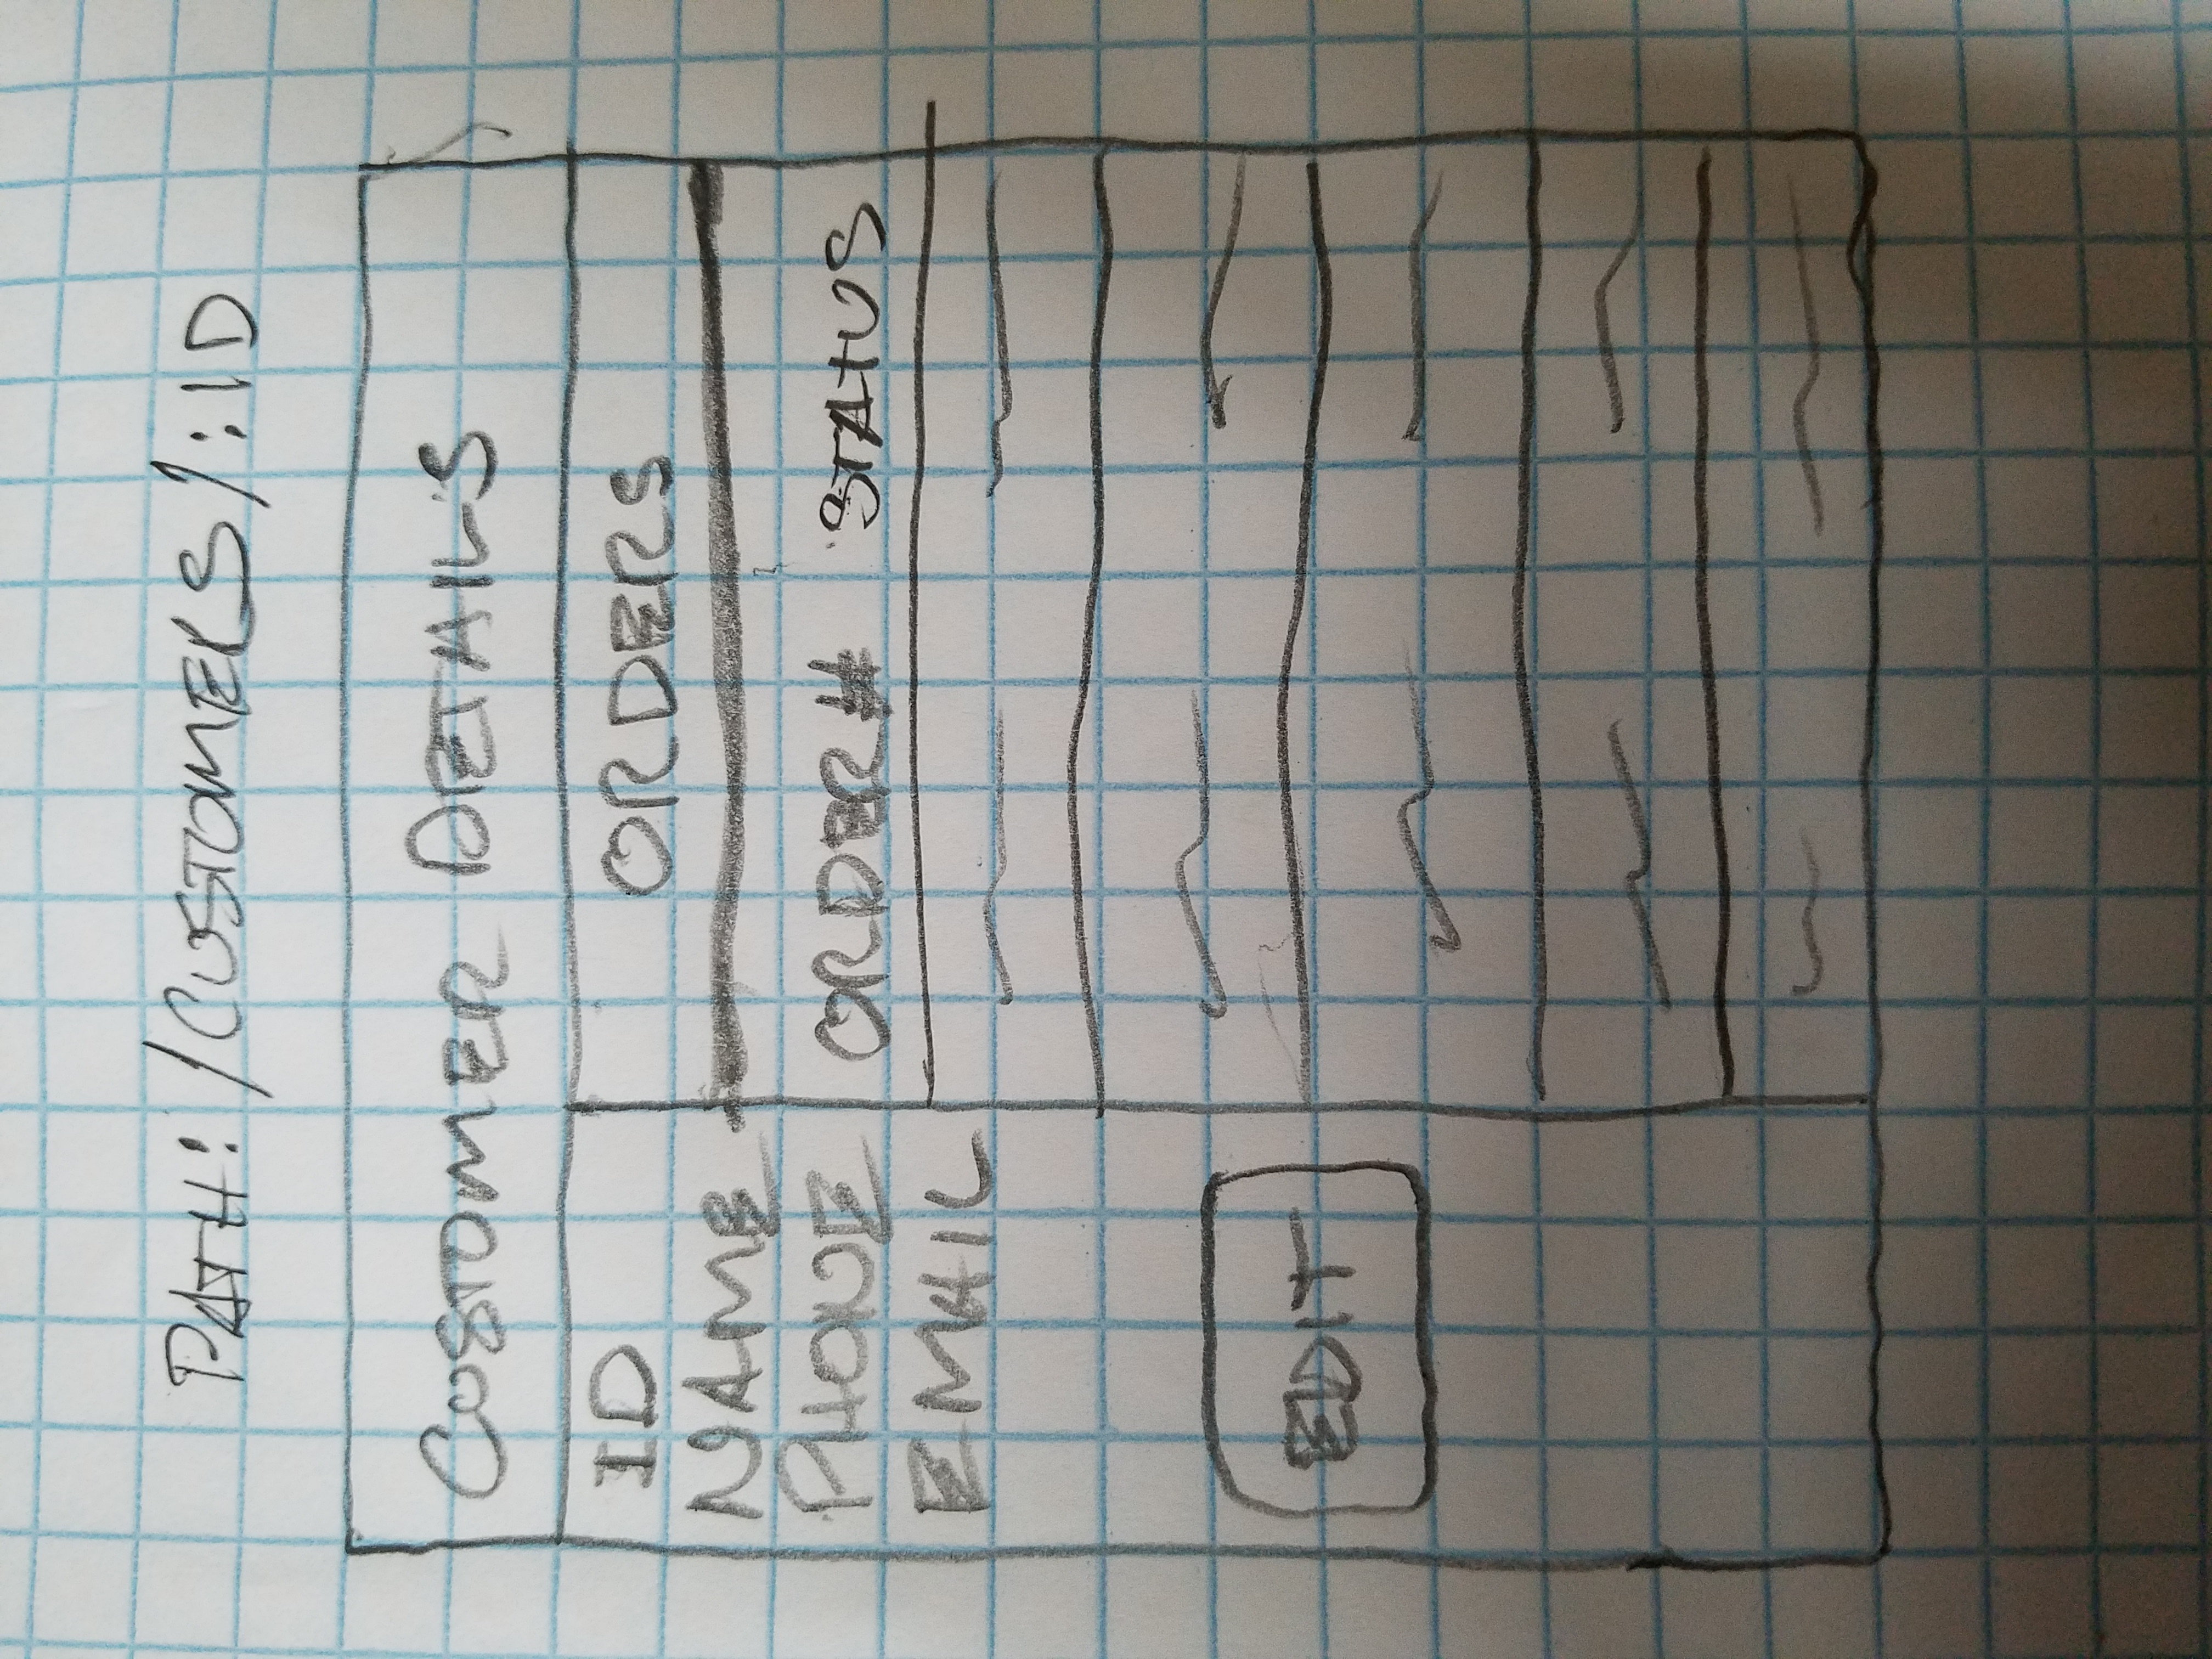 PATH: /CUSTOMERS/:ID
CUSTOMER DETAILS
ID
NAME
PHONE
EMAIL
EDIT
ORDERS
ORDER# STATUS